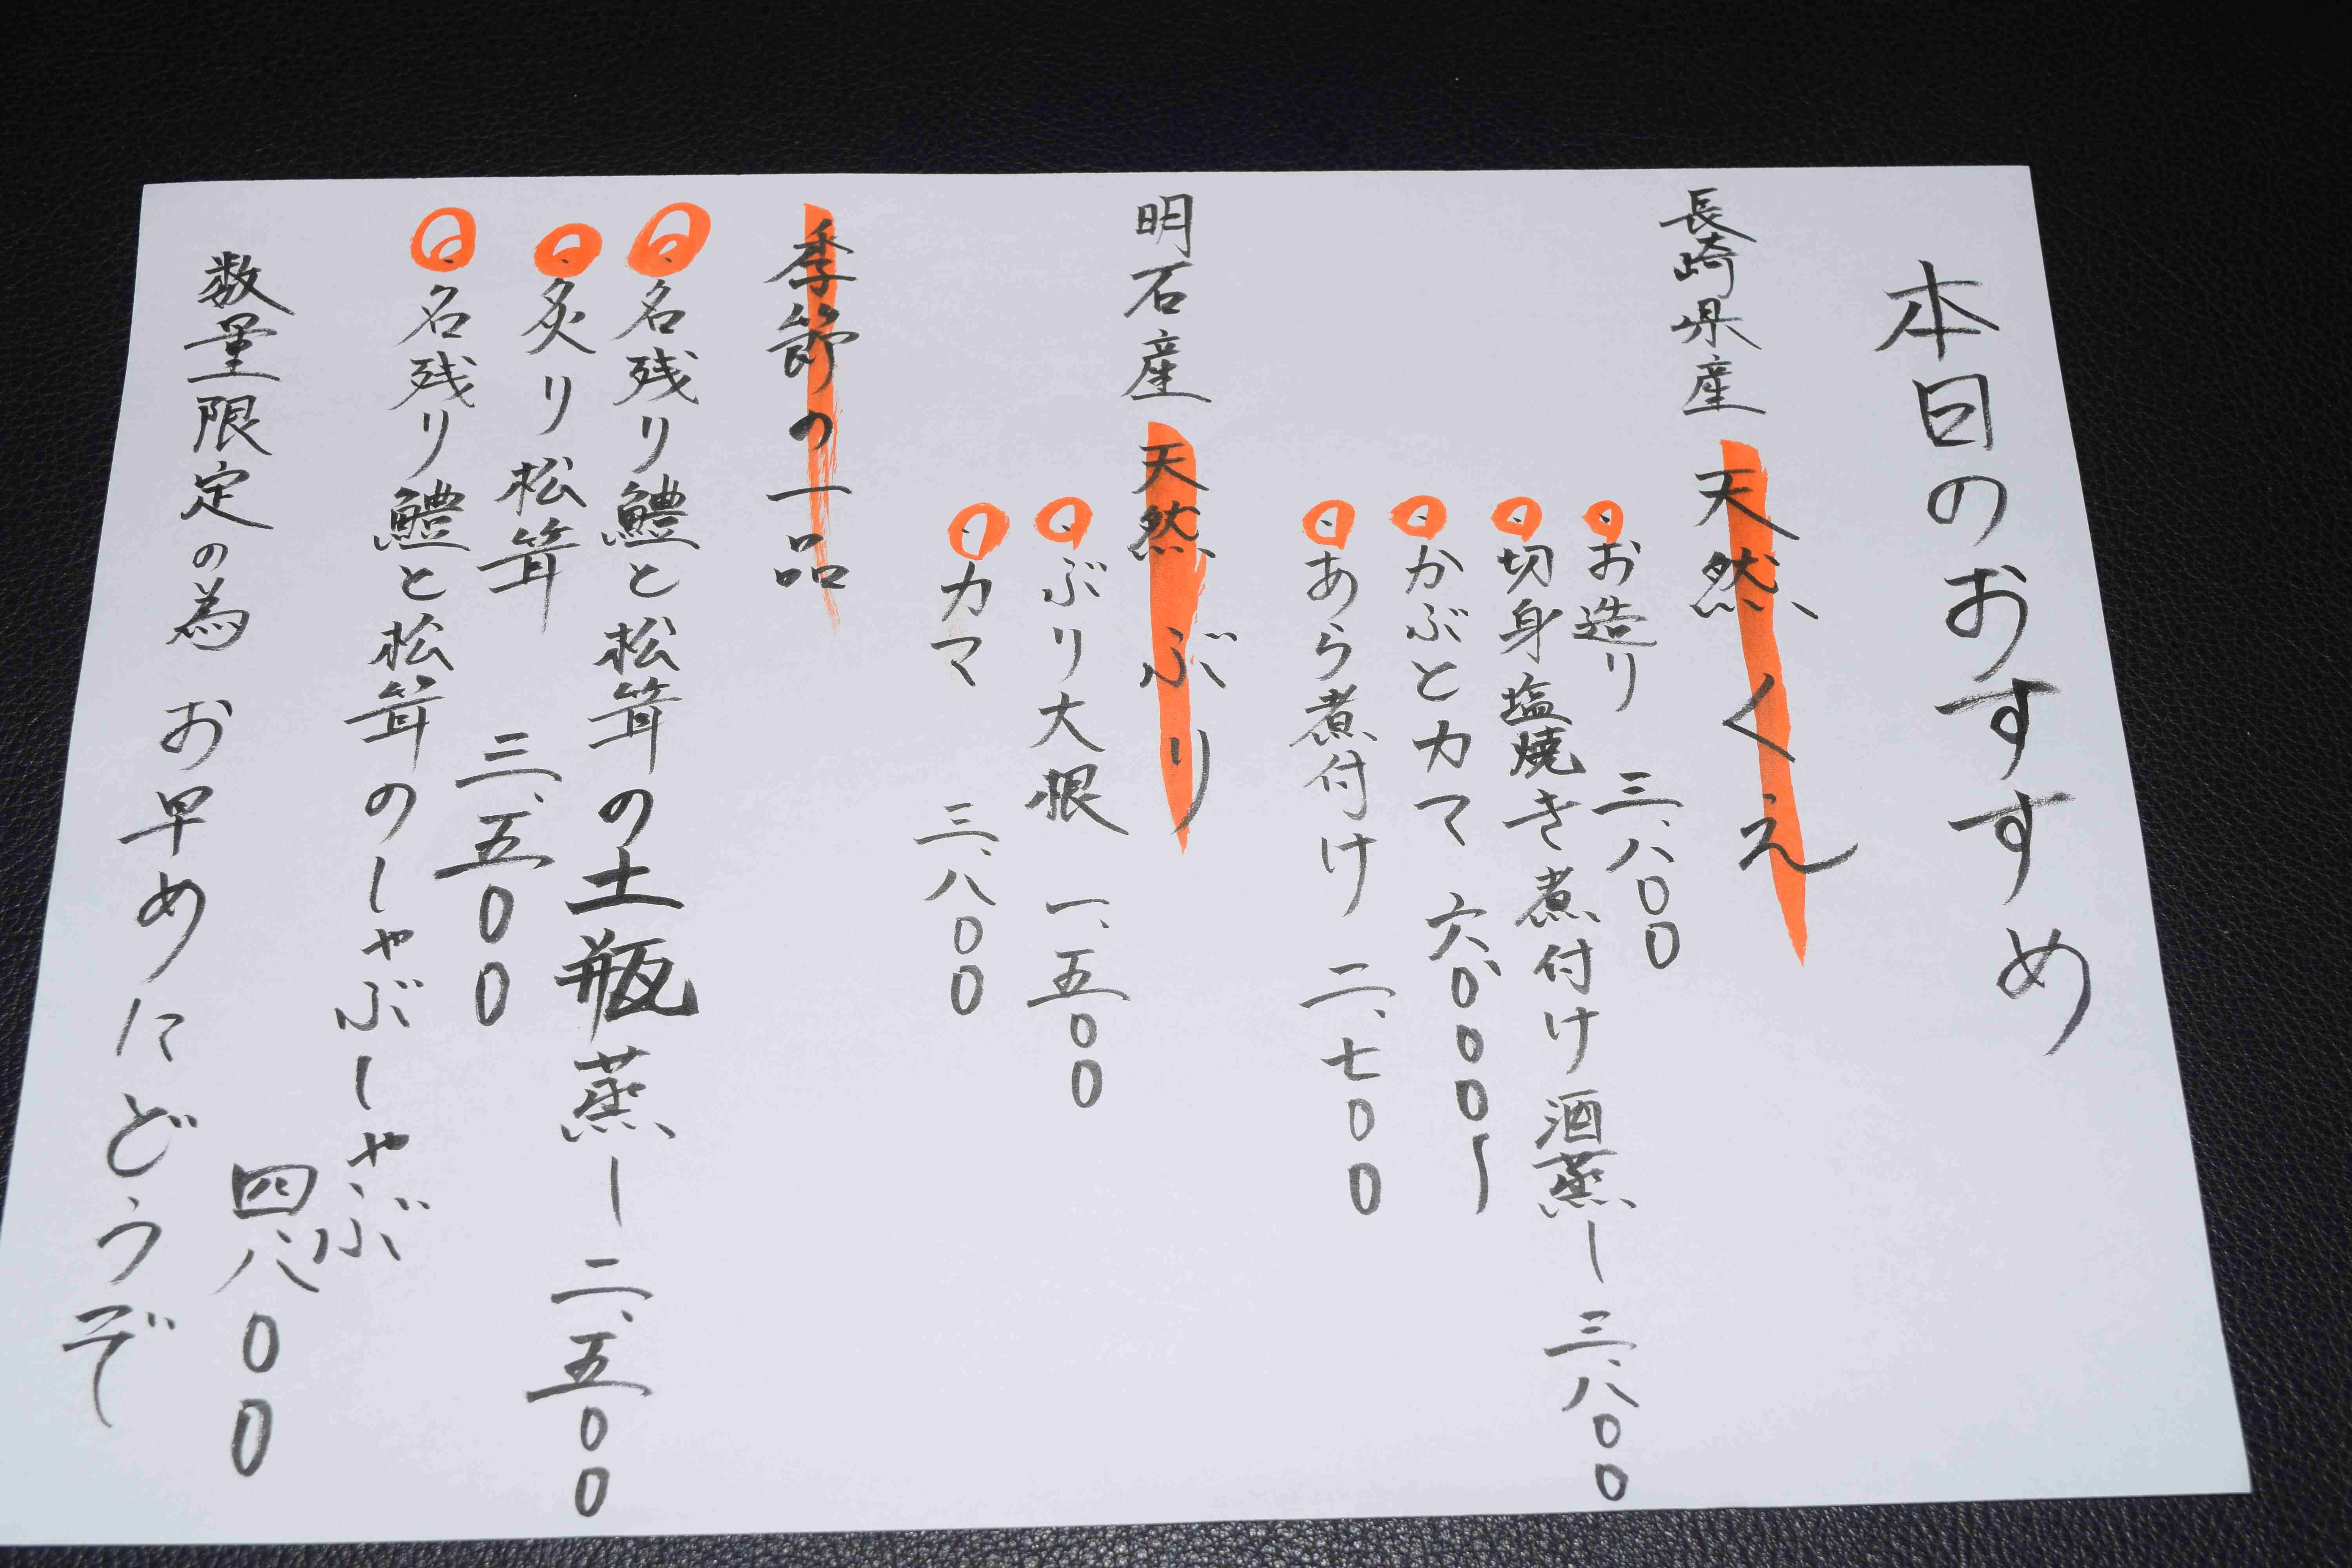 本日のおすすめ
長崎県産 天然 くえ
・お造り 三、八〇〇
・切身塩焼き煮付け酒蒸し 三、八〇〇
・かぶとカマ 六、〇〇〇〜
・あら煮付け 二、七〇〇
明石産 天然 ぶり
・ぶり大根 一、五〇〇
・カマ 三、八〇〇
季節の一品
・名残り鱧と松茸の土瓶蒸し 二、五〇〇
・炙り松茸 三、五〇〇
・名残り鱧と松茸のしゃぶしゃぶ 四、八〇〇
数量限定の為 お早めにどうぞ